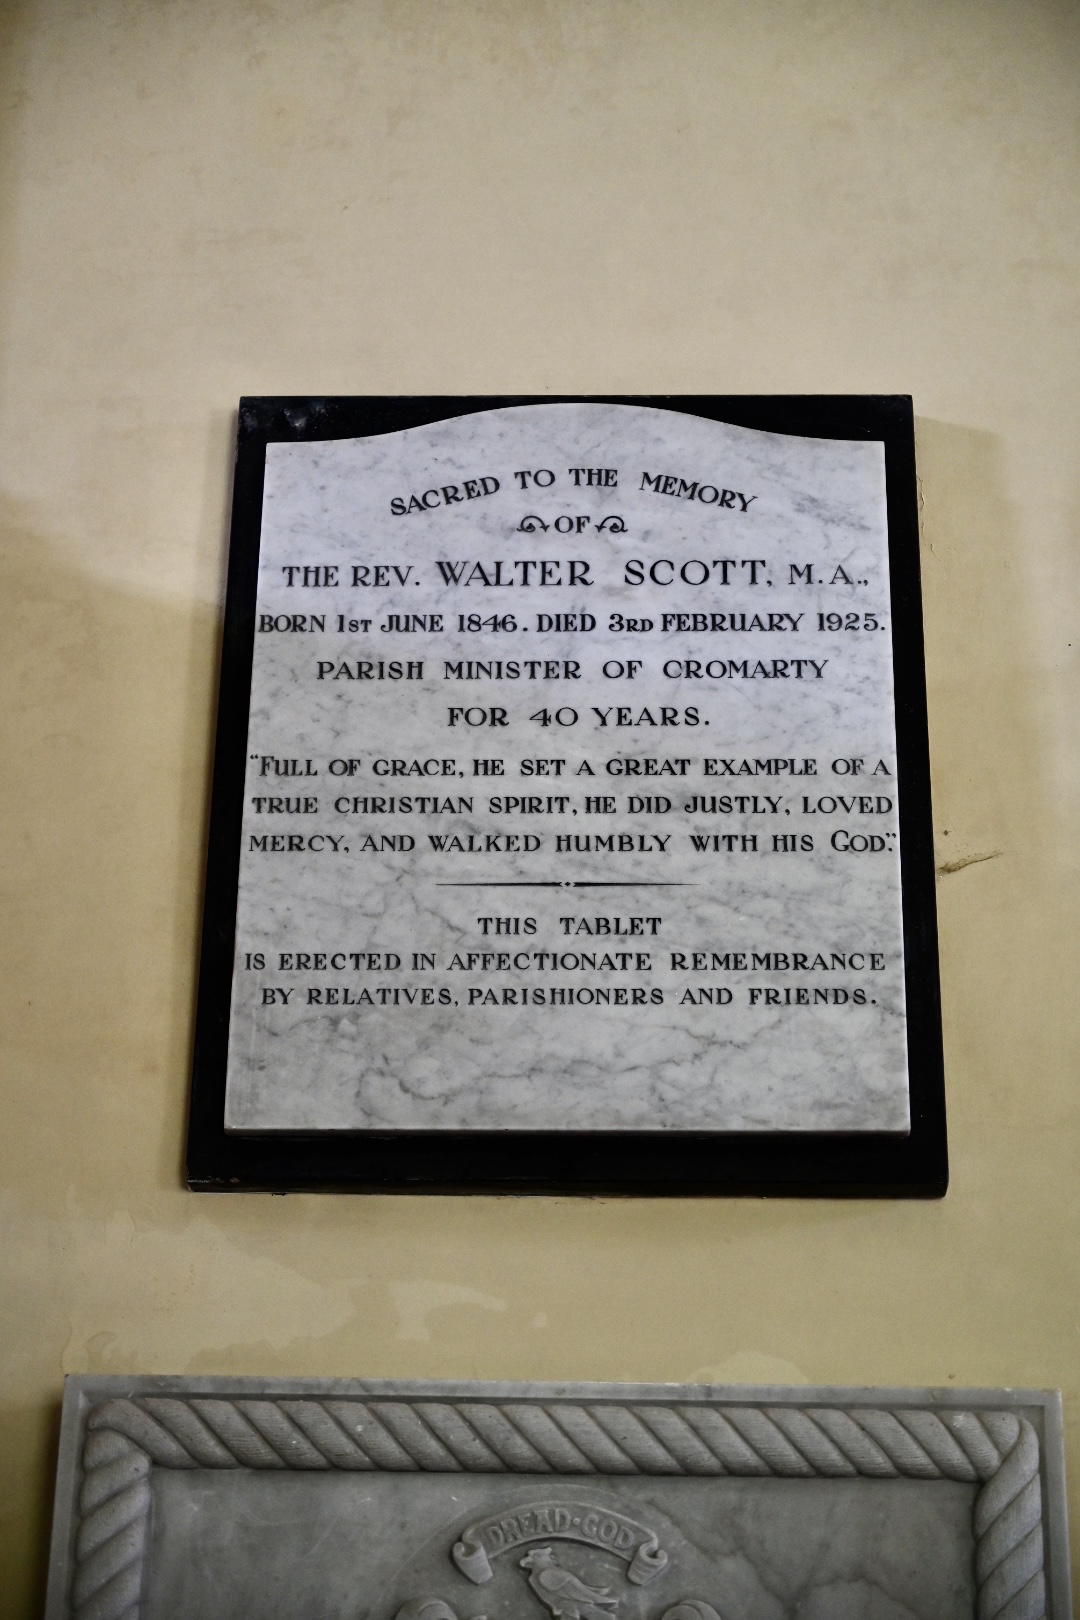 SACRED TO THE MEMORY
OF
THE REV. WALTER SCOTT, M.A.,
BORN 1ST JUNE 1846. DIED 3RD FEBRUARY 1925.
PARISH MINISTER OF CROMARTY
FOR 40 YEARS.
"FULL OF GRACE, HE SET A GREAT EXAMPLE OF A
TRUE CHRISTIAN SPIRIT, HE DID JUSTLY, LOVED
MERCY, AND WALKED HUMBLY WITH HIS GOD."
THIS TABLET
IS ERECTED IN AFFECTIONATE REMEMBRANCE
BY RELATIVES, PARISHIONERS AND FRIENDS.
DREAD·GOD